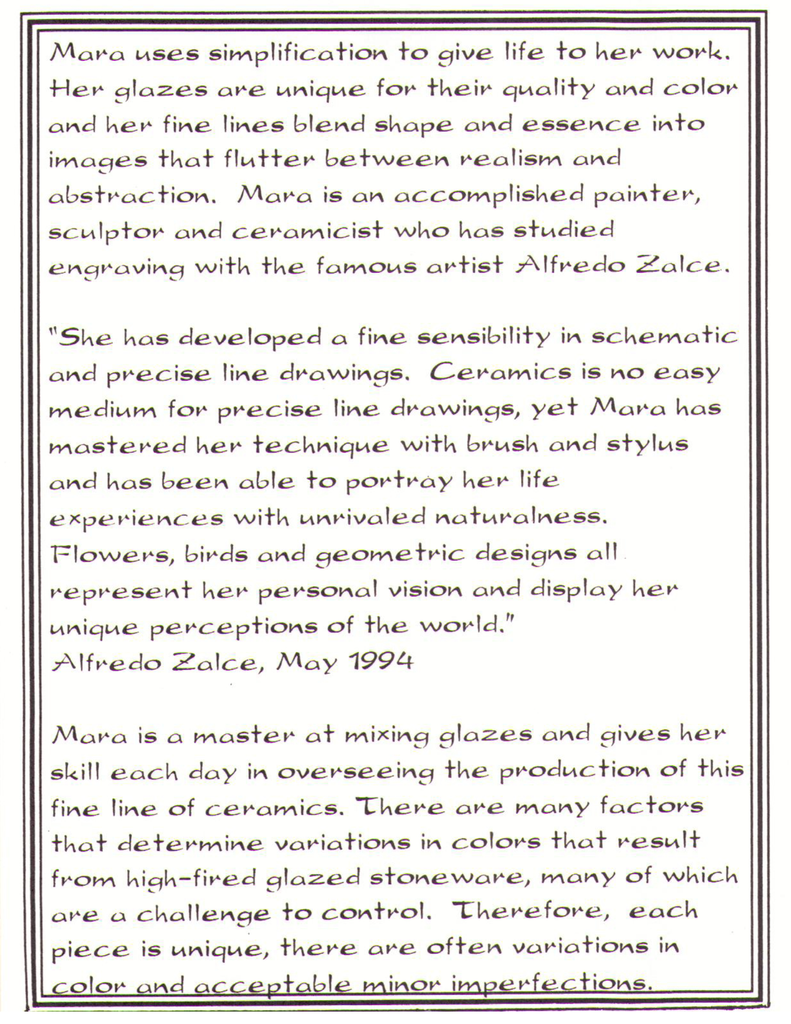 Mara uses simplification to give life to her work.
Her glazes are unique for their quality and color
and her fine lines blend shape and essence into
images that flutter between realism and
abstraction. Mara is an accomplished painter,
sculptor and ceramicist who has studied
engraving with the famous artist Alfredo Zalce.

"She has developed a fine sensibility in schematic
and precise line drawings. Ceramics is no easy
medium for precise line drawings, yet Mara has
mastered her technique with brush and stylus
and has been able to portray her life
experiences with unrivaled naturalness.
Flowers, birds and geometric designs all
represent her personal vision and display her
unique perceptions of the world."
Alfredo Zalce, May 1994

Mara is a master at mixing glazes and gives her
skill each day in overseeing the production of this
fine line of ceramics. There are many factors
that determine variations in colors that result
from high-fired glazed stoneware, many of which
are a challenge to control. Therefore, each
piece is unique, there are often variations in
color and acceptable minor imperfections.